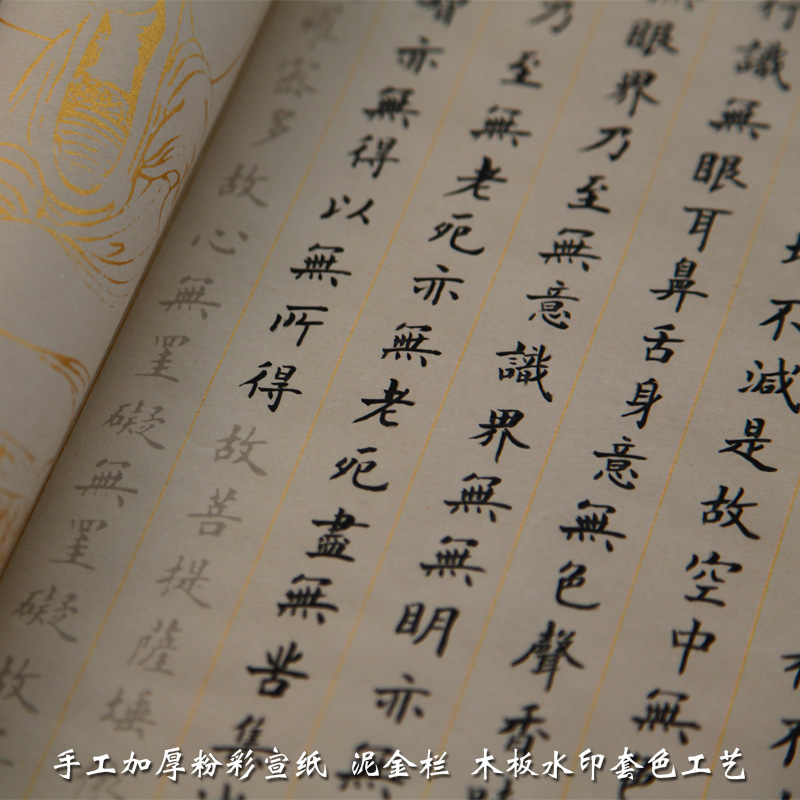 不減是故空中無色
行識無眼耳鼻舌身意無色聲香
無眼界乃至無意識界無無明亦無
乃至無老死亦無老死盡無苦集
智亦無得以無所得故菩提薩埵依
羅蜜多故心無罣礙無罣礙故
手工加厚粉彩宣纸 泥金栏 木板水印套色工艺